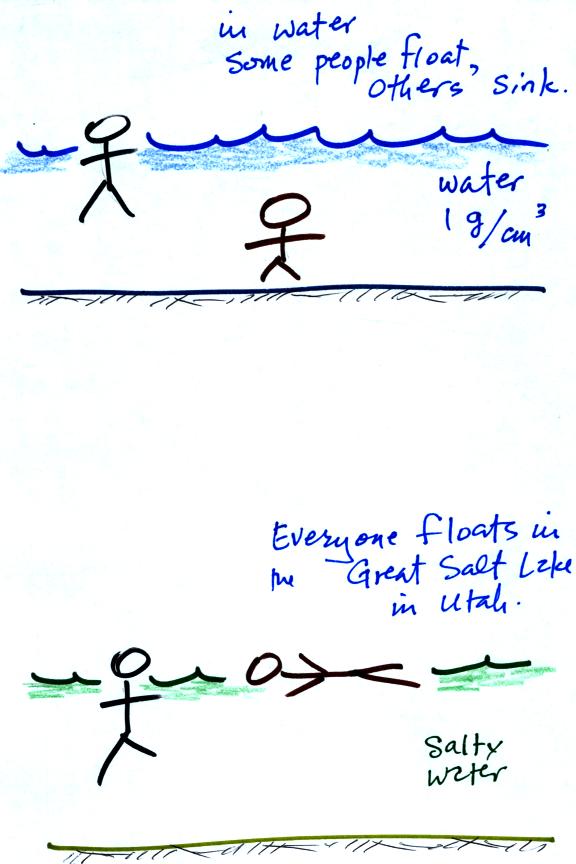 in water
Some people float,
Others sink.
water
1 g/cm³
Everyone floats in
the Great Salt Lake
in Utah.
Salty
water